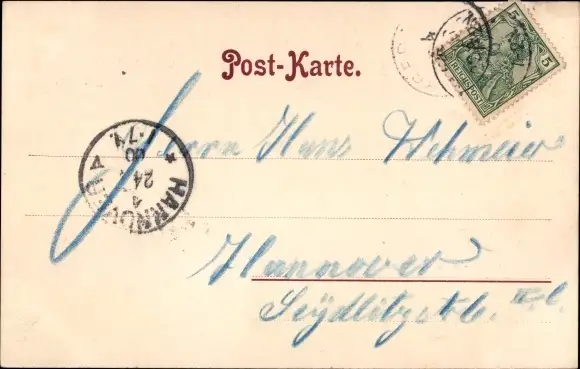 Post-Karte.
5
REICHSPOST
5
Herrn Hans Wehmeier
HANNOVER
4
24
00
7-
Hannover
Seydlitzstr.